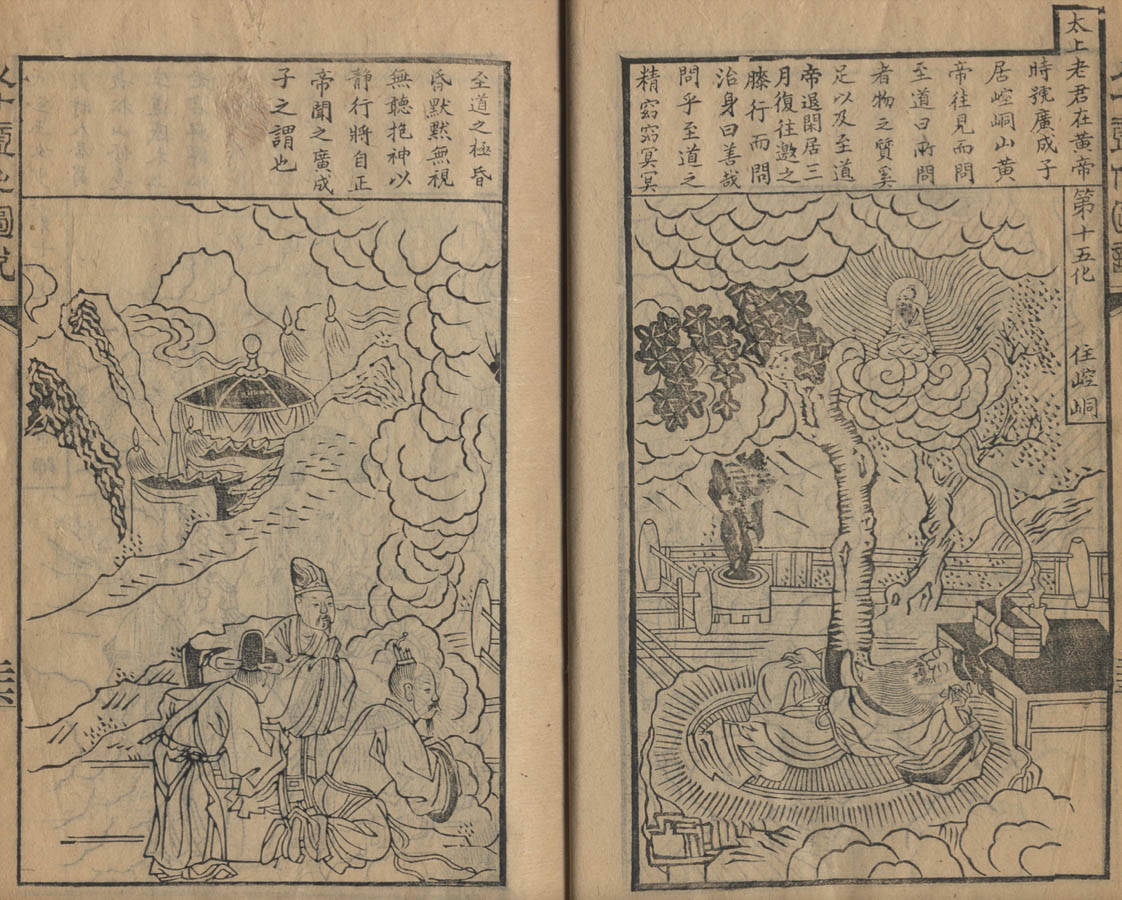 太上老君在黃帝
時號廣成子
居崆峒山黃
帝往見而問
至道曰所問
者物之質奚
足以及至道
帝退閑居三
月復往邀之
膝行而問
治身曰善哉
問乎至道之
精窈窈冥冥
第十五化
住崆峒
至道之極昏
昏默默無視
無聽抱神以
靜行將自正
帝聞之廣成
子之謂也